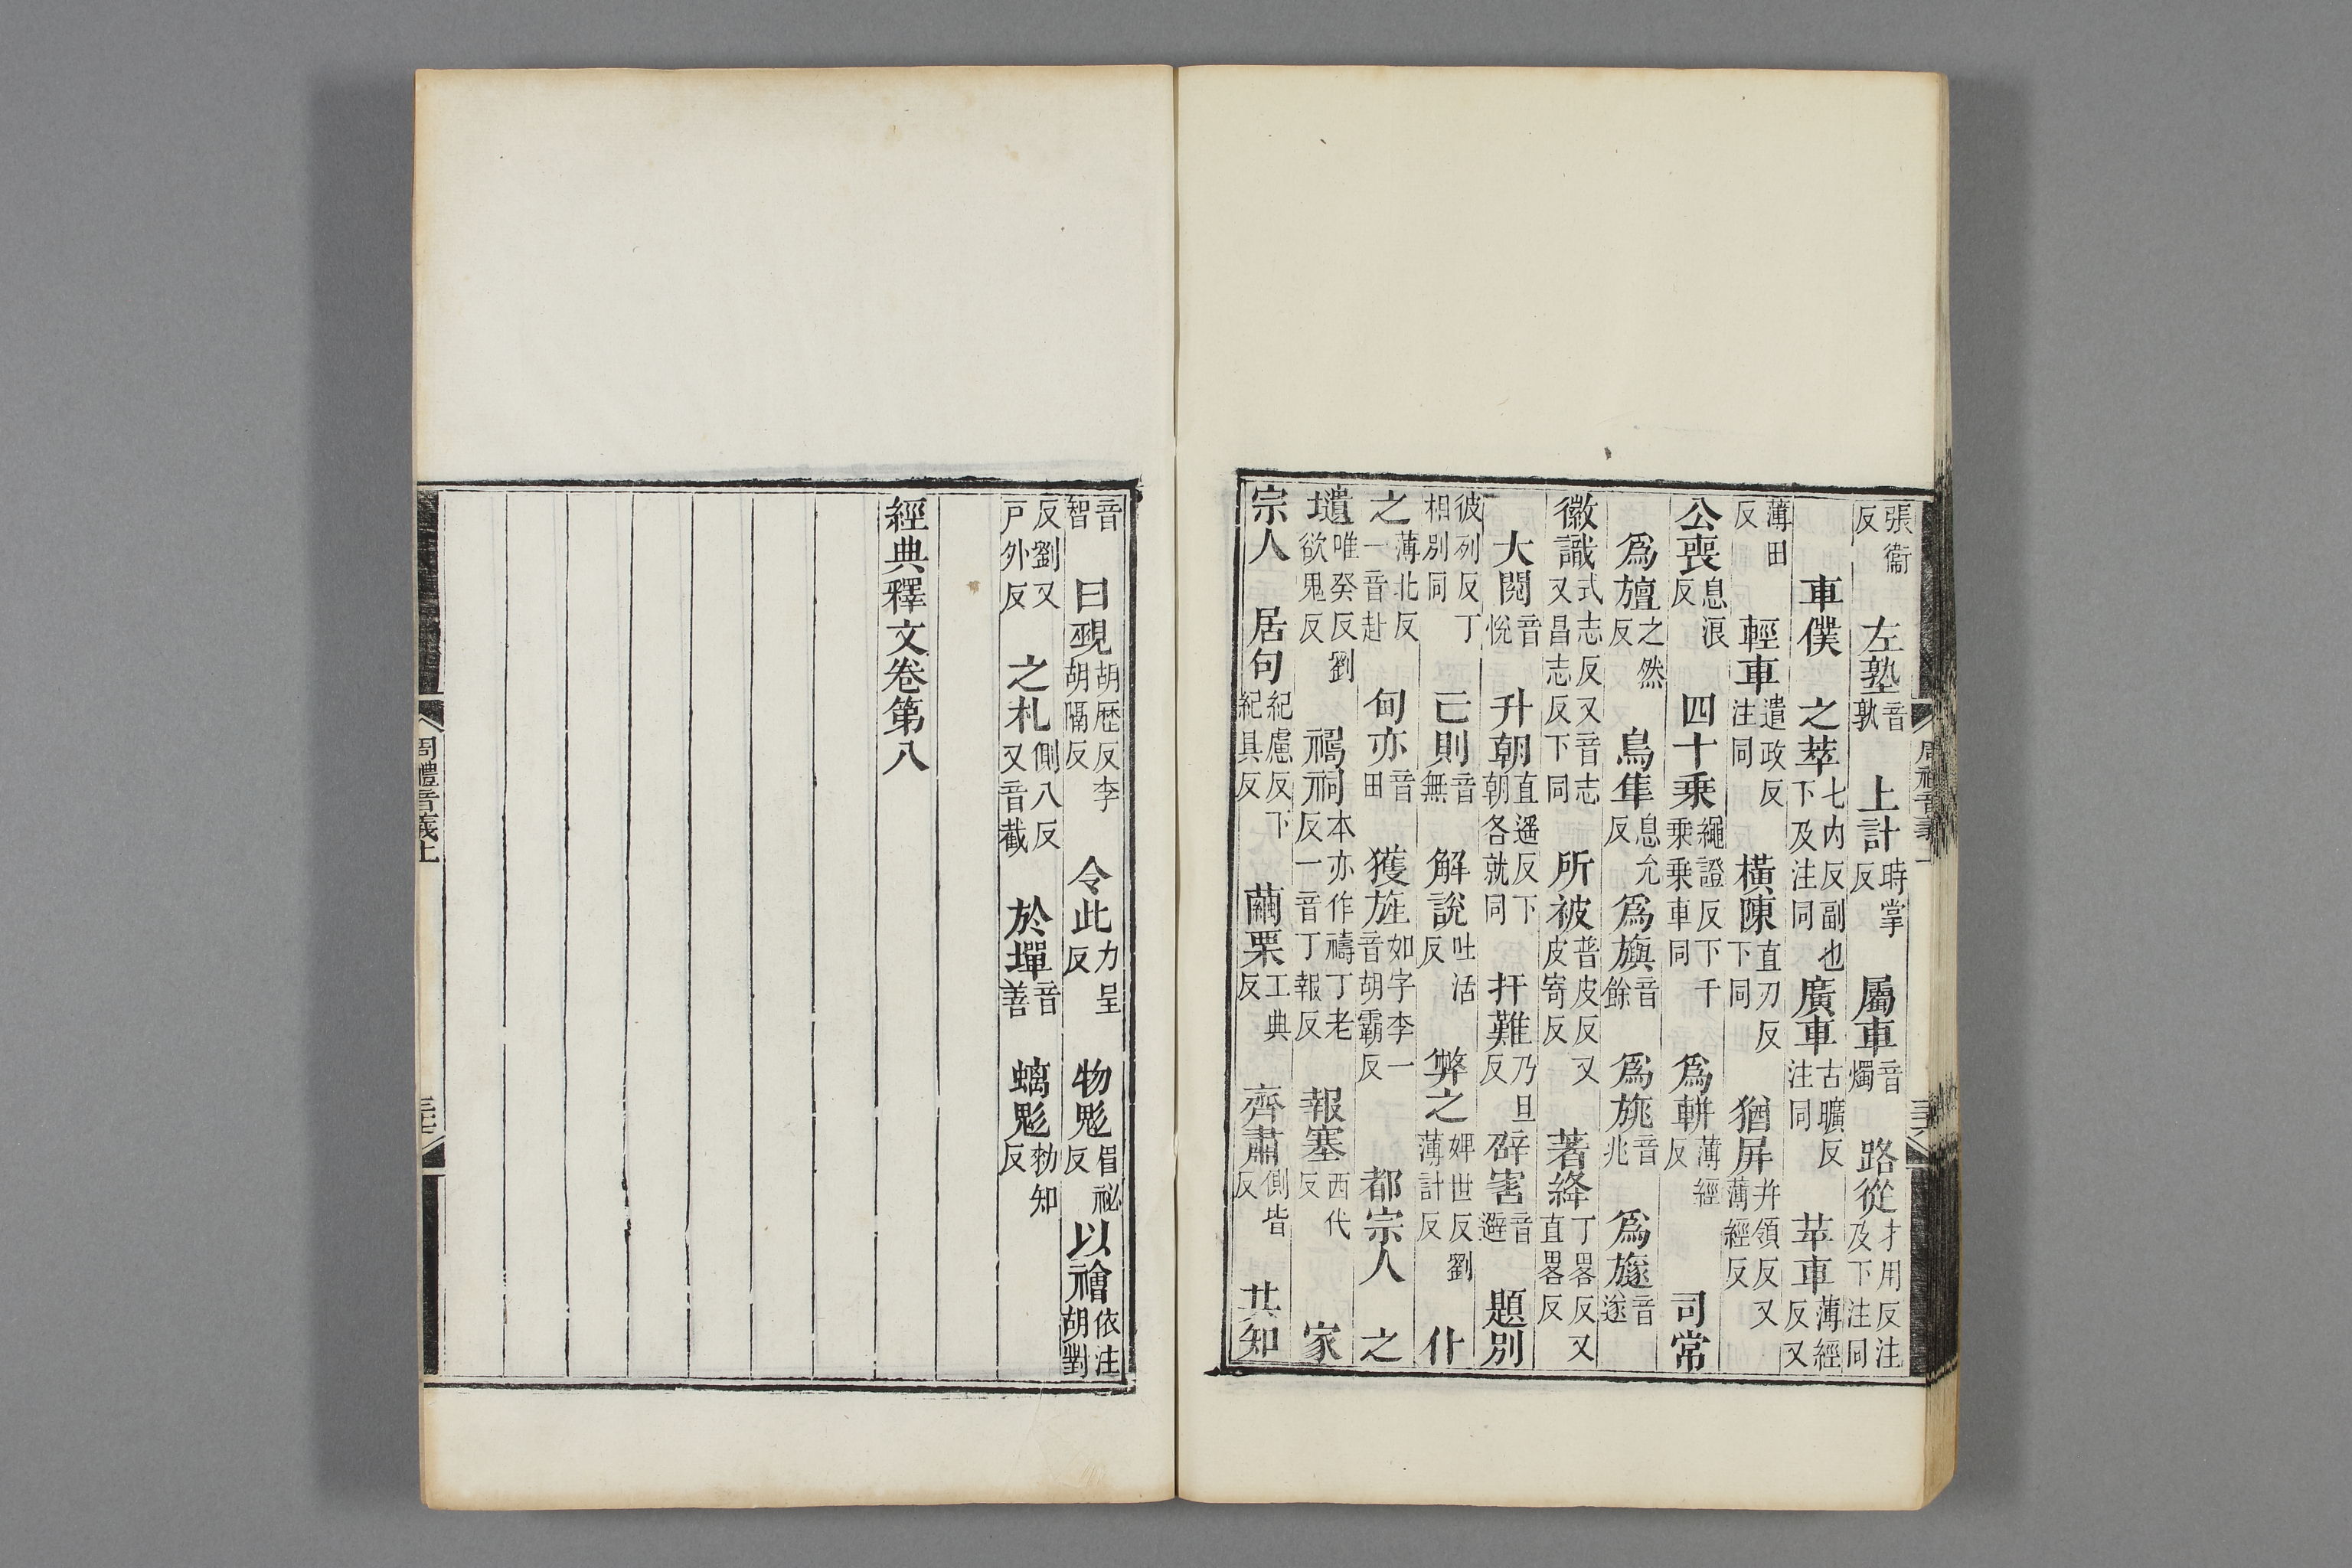 張衞反　左塾音孰　上計時掌反　屬車音燭　路從才用反注及下注同
車僕　之萃七内反副也下及注同　廣車古曠反注同　苹車薄經反又
薄田反　輕車遣政反注同　橫陳直刃反下同　猶屏并領反又薄經反
公喪息浪反　四十乘繩證反下千乘乘車同　爲軿薄經反　司常
爲旜之然反　鳥隼息允反　爲旟音餘　爲旐音兆　爲旞音遂
徽識式志反又音志又昌志反下同　所被普皮反又皮寄反　著絳丁畧反又直畧反
大閱音悅　升朝直遥反下朝各就同　扞難乃旦反　辟害音避　題別
彼列反丁相別同　已則音無　解說吐活反　弊之婢世反劉薄計反　仆
之薄北反一音赴　甸亦音田　獲旌如字李一音胡霸反　都宗人　之
壝唯癸反劉欲鬼反　禂祠本亦作禱丁老反一音丁報反　報塞西代反　家
宗人　居句紀慮反下紀具反　繭栗工典反　齊肅側皆反　共知
音智　曰覡胡歷反李胡隔反　令此力呈反　物鬽眉祕反　以禬依注胡對
反劉又戸外反　之札側八反又音截　於墠音善　螭鬽勑知反
經典釋文卷第八
周禮音義上